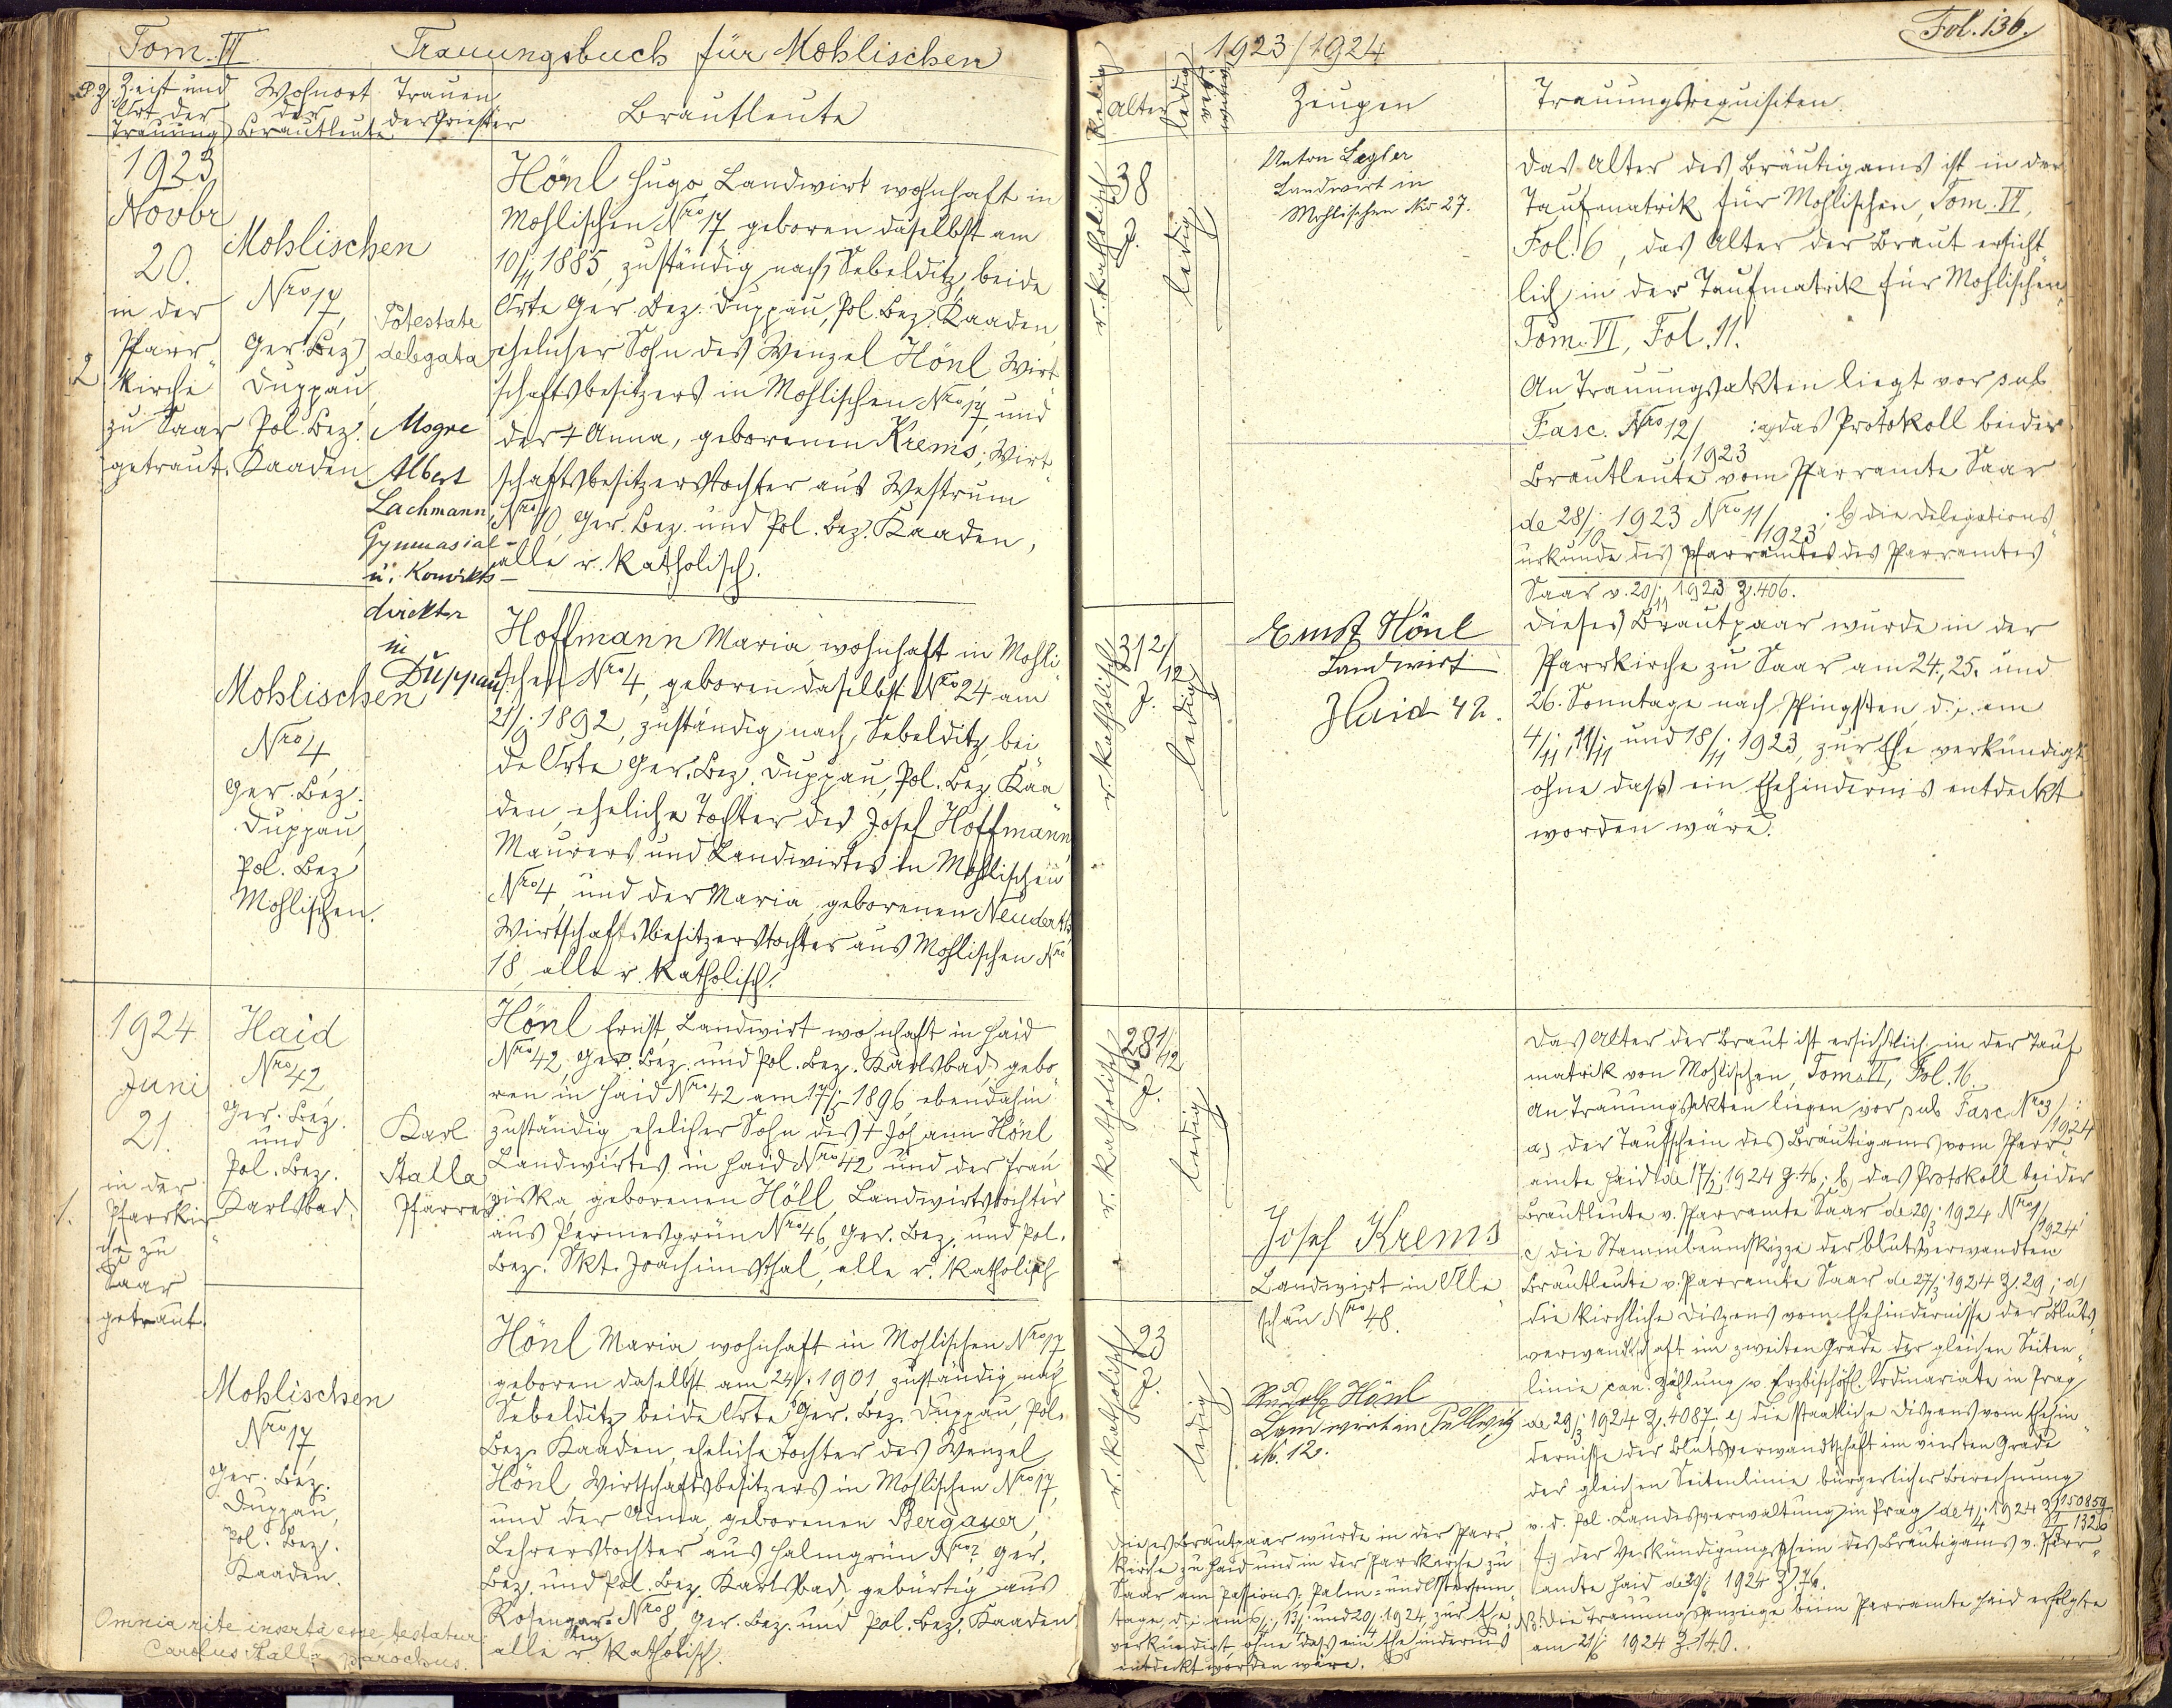 Tom. VI. Trauungsbuch für Mohlischen
P.Z. Zeit und Ort der Trauung
Wohnort der Brautleute
Trauender Priester
Brautleute
1923
Novbr
20.
in der
Pfarr„
kirche
zu Saar
getraut.
2
Mohlischen
Nro 17,
Ger. Bez.
Duppau,
Pol. Bez.
Kaaden
Potestate
delegata
Msgre
Albert
Lachmann,
Gymnasial-
u. Konvikts-
direktor
in
Duppau
Hönl Hugo, Landwirt wohnhaft in
Mohlischen Nro 17, geboren daselbst am
10/11 1885, zuständig nach Sebelditz, beide
Orte Ger. Bez. Duppau, Pol. Bez. Kaaden,
ehelicher Sohn des Wenzel Hönl, Wirt„
schaftsbesitzers in Mohlischen Nro 17, und
der + Anna, geborenen Krems, Wirt„
schaftsbesitzerstochter aus Westrum
Nro 10, Ger. Bez. und Pol. Bez. Kaaden,
alle r. katholisch.
Mohlischen
Nro 4,
Ger. Bez.
Duppau,
Pol. Bez
Mohlischen.
Hoffmann Maria, wohnhaft in Mohli„
schen Nro 4, geboren daselbst Nro 24 am
21/9 1892, zuständig nach Sebelditz, bei„
de Orte Ger. Bez. Duppau, Pol. Bez. Kaa„
den, eheliche Tochter des Josef Hoffmann,
Maurers und Landwirtes in Mohlischen
Nro 4, und der Maria, geborenen Neuderth,
Wirtschaftsbesitzerstochter aus Mohlischen Nro
18, alle r. katholisch.
1924
Juni
21.
in der
Pfarrkir„
che zu
Saar
getraut.
1.
Haid
Nro 42
Ger. Bez.
und
Pol. Bez.
Karlsbad.
Karl
Stalla
Pfarrer
Hönl Ernst, Landwirt wohnhaft in Haid
Nro 42, Ger. Bez. und Pol. Bez. Karlsbad, gebo„
ren in Haid Nro 42 am 17/5 1896 ebendahin
zuständig, ehelicher Sohn des + Johann Hönl
Landwirtes in Haid Nro 42 und der Fran„
ziska, geborenen Höll, Landwirtstochter
aus Permesgrün Nro 46, Ger. Bez. und Pol.
Bez. Skt. Joachimsthal, alle r. katholisch
Mohlischen
Nro 17,
Ger. Bez.
Duppau,
Pol. Bez.
Kaaden.
Hönl Maria, wohnhaft in Mohlischen Nro 17
geboren daselbst am 24/6 1901, zuständig nach
Sebelditz beide Orte Ger. Bez. Duppau, Pol.
Bez. Kaaden, eheliche Tochter des Wenzel
Hönl, Wirtschaftsbesitzers in Mohlischen Nro 17,
und der Anna, geborenen Bergauer,
Lehrerstochter aus Halmgrün Nro 2, Ger.
Bez. und Pol. Bez. Karlsbad, gebürtig aus
Rosengarten Nro 8, Ger. Bez. und Pol. Bez. Kaaden
alle r. katholisch.
Omnia rite inserta esse testatur
Carolus Stalla parochus.
1923/1924
Fol. 136.
Alter
ledig
Zeugen
Trauungsrequisiten.
r. katholisch
38
J.
ledig
Anton Legler
Landwirt in
Mohlischen Nro 27.
Das Alter des Bräutigams ist in der
Taufmatrik für Mohlischen, Tom. VI,
Fol. 6, das Alter der Braut ersicht„
lich in der Taufmatrik für Mohlischen,
Tom. VI, Fol. 11.
An Trauungsakten liegt vor sub
Fasc. Nro 12/1923 : a) das Protokoll beider
Brautleute vom Pfarramte Saar
de 28/10 1923 Nro 11/1923; b) die Delegations„
urkunde des Pfarramtes des Pfarramtes
Saar v. 20/11 1923 Z. 406.
Dieses Brautpaar wurde in der
Pfarrkirche zu Saar am 24., 25. und
26. Sonntage nach Pfingsten, d. i. am
4/11, 11/11 und 18/11 1923, zur Ehe verkündigt
ohne dass ein Ehehindernis entdeckt
worden wäre.
r. katholisch
31 2/12
J.
ledig
Ernst Hönl
Landwirt
Haid 42.
r. katholisch
28 1/12
J.
ledig
Josef Krems
Landwirt in Olle„
schau Nro 48.
r. katholisch
23
J.
ledig
Rudolf Hönl
Landwirt in Püllwitz
N. 12.
Das Alter der Braut ist ersichtlich in der Tauf„
matrik von Mohlischen, Tom. VI, Fol. 16.
An Trauungsakten liegen vor sub Fasc. Nro 3/1924:
a) der Taufschein des Bräutigams vom Pfarr„
amte Haid de 17/2 1924 Z. 46; b) das Protokoll beider
Brautleute v. Pfarramte Saar de 20/3 1924 Nro 1/1924;
c) die Stammbaumskizze der blutsverwandten
Brautleute v. Pfarramte Saar de 27/3 1924 Z. 29; d)
die kirchliche Dispens vom Ehehindernisse der Bluts„
verwandtschaft im zweiten Grade der gleichen Seiten„
linie can. Zählung v. Erzbischöfl. Ordinariate in Prag
de 29/3 1924 Z. 4087, e) die staatliche Dispens vom Ehehin„
dernisse der Blutsverwandtschaft im vierten Grade
der gleichen Seitenlinie bürgerlicher Berechnung
v. d. Pol. Landesverwaltung in Prag de 4/4 1924 Z. 150859
f.) der Verkündigungsschein des Bräutigams v. Pfarr„
amte Haid de 1924 Z. 76.
NB. Die Trauungsanzeige beim Pfarramte Haid erfolgte
am 21/6 1924 Z. 140.
Dieses Brautpaar wurde in der Pfarr„
kirche zu Haid und in der Pfarrkirche zu
Saar am Passions-, Palm- und Ostersonn„
tage, d. i. am 6/4, 13/4 und 20/4 1924, zur Ehe
verkündigt ohne dass ein Ehehindernis
entdeckt worden wäre.